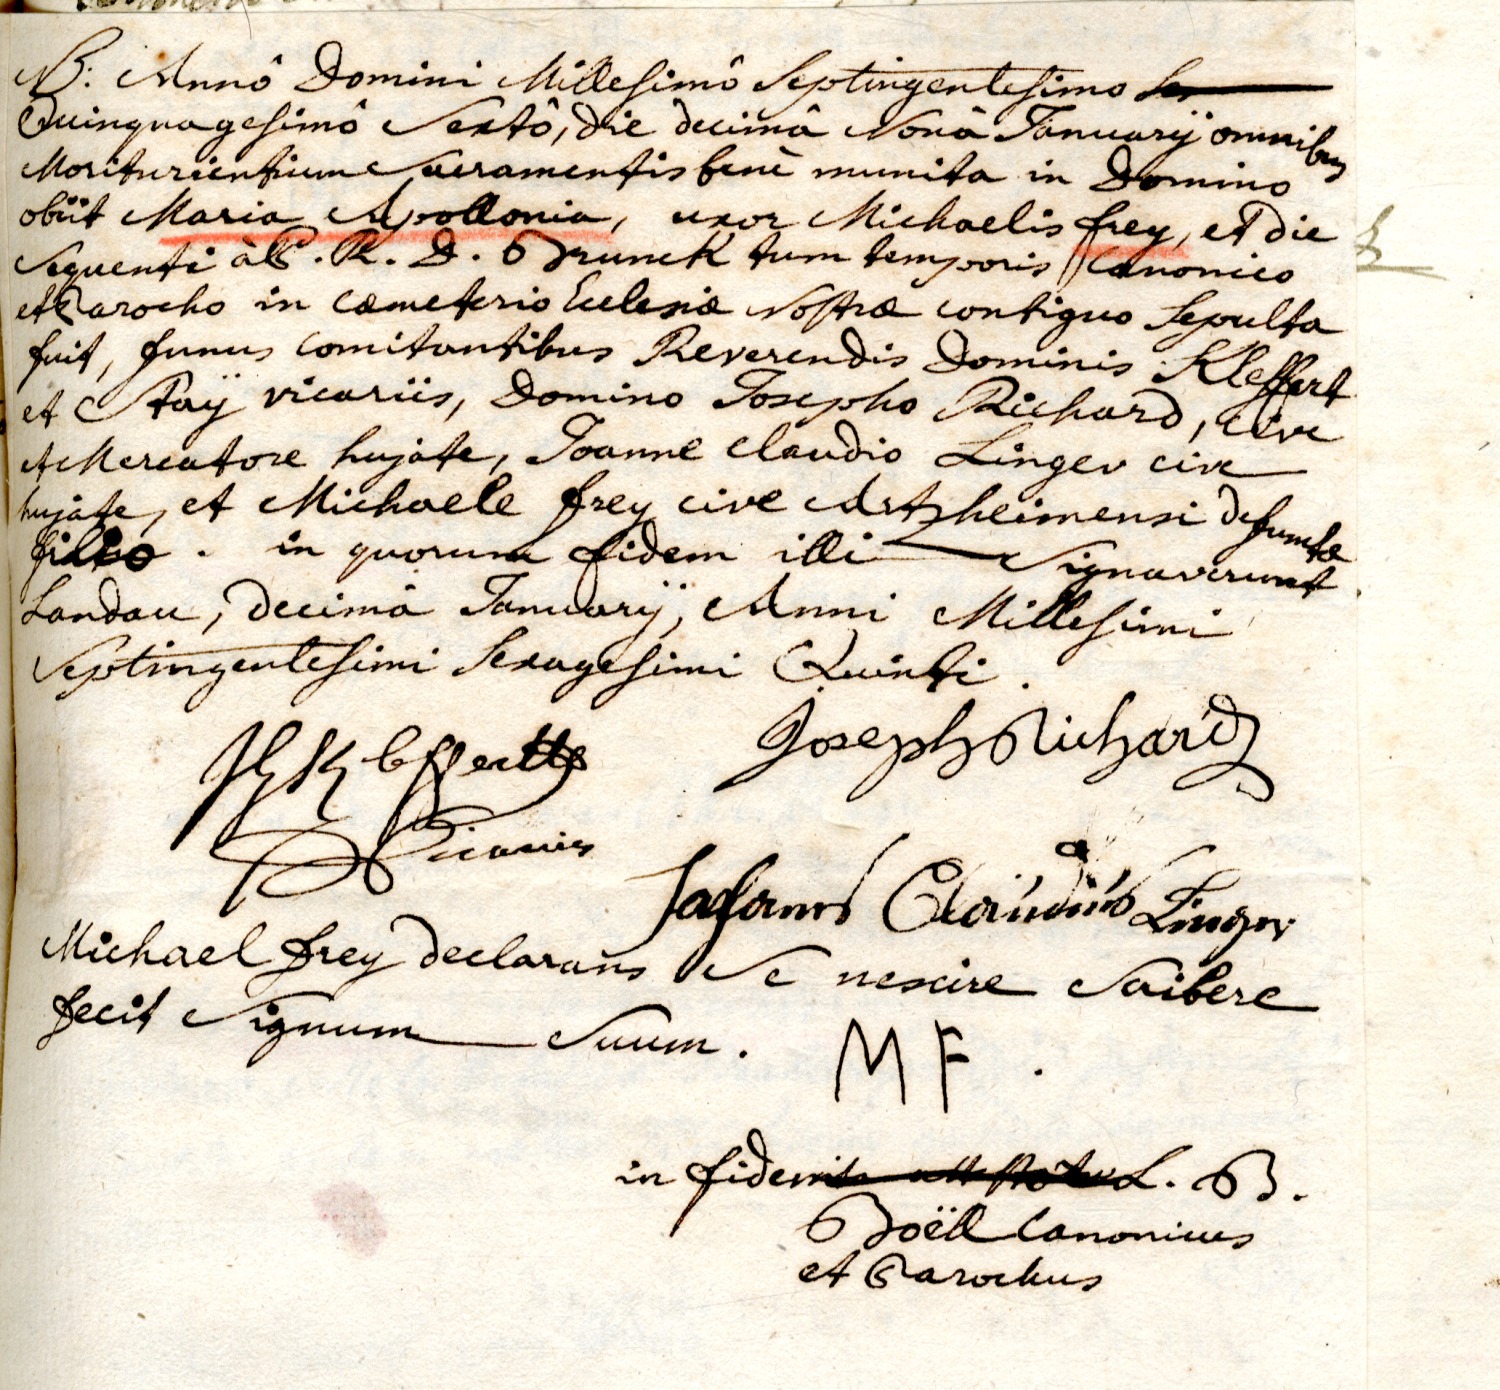 NB: Annô Domini Millesimô Septingentesimo Sex
Quinquagesimô Sextô, die decimâ Nonâ Januarÿ omnibus
Moriturientium Sacramentis benè munita in Domino
obiit Maria Apollonia, uxor Michaelis frey, et die
Sequenti à P. R. D. Brunck tum temporis canonico
et Parocho in cœmeterio Ecclesiæ Nostræ contiguo Sepulta
fuit, funus comitantibus Reverendis Dominis Kleffert
et Staÿ vicariis, Domino Josepho Richard, cive
et Mercatore hujate, Joanne Claudio Linger cive
hujate, et Michaele frey cive Artzheimensi defunctæ
filio. in quorum fidem illi Signaverunt
Landau, decimâ Januarÿ, Anni Millesimi
Septingentesimi Sexagesimi Quinti.
Kleffert Joseph Richard
Vicarius
Johannes Claudius Linger
Michael frey declarans Se nescire Scribere
fecit Signum Suum. MF.
in fidem L. B.
Boëll Canonicus
et Parochus